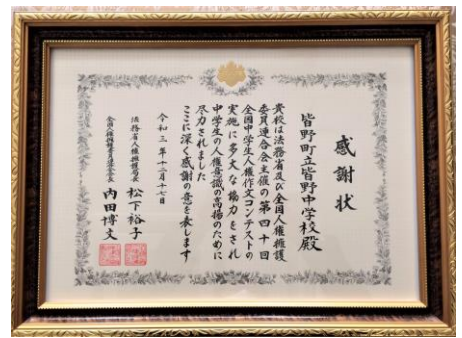 感謝状
皆野町立皆野中学校殿
貴校は法務省及び全国人権擁護
委員連合会主催の第四十回
全国中学生人権作文コンテストの
実施に多大な協力をされ
中学生の人権意識の高揚のために
尽力されました
ここに深く感謝の意を表します
令和三年十二月十七日
法務省人権擁護局長 松下裕子
全国人権擁護委員連合会長 内田博文